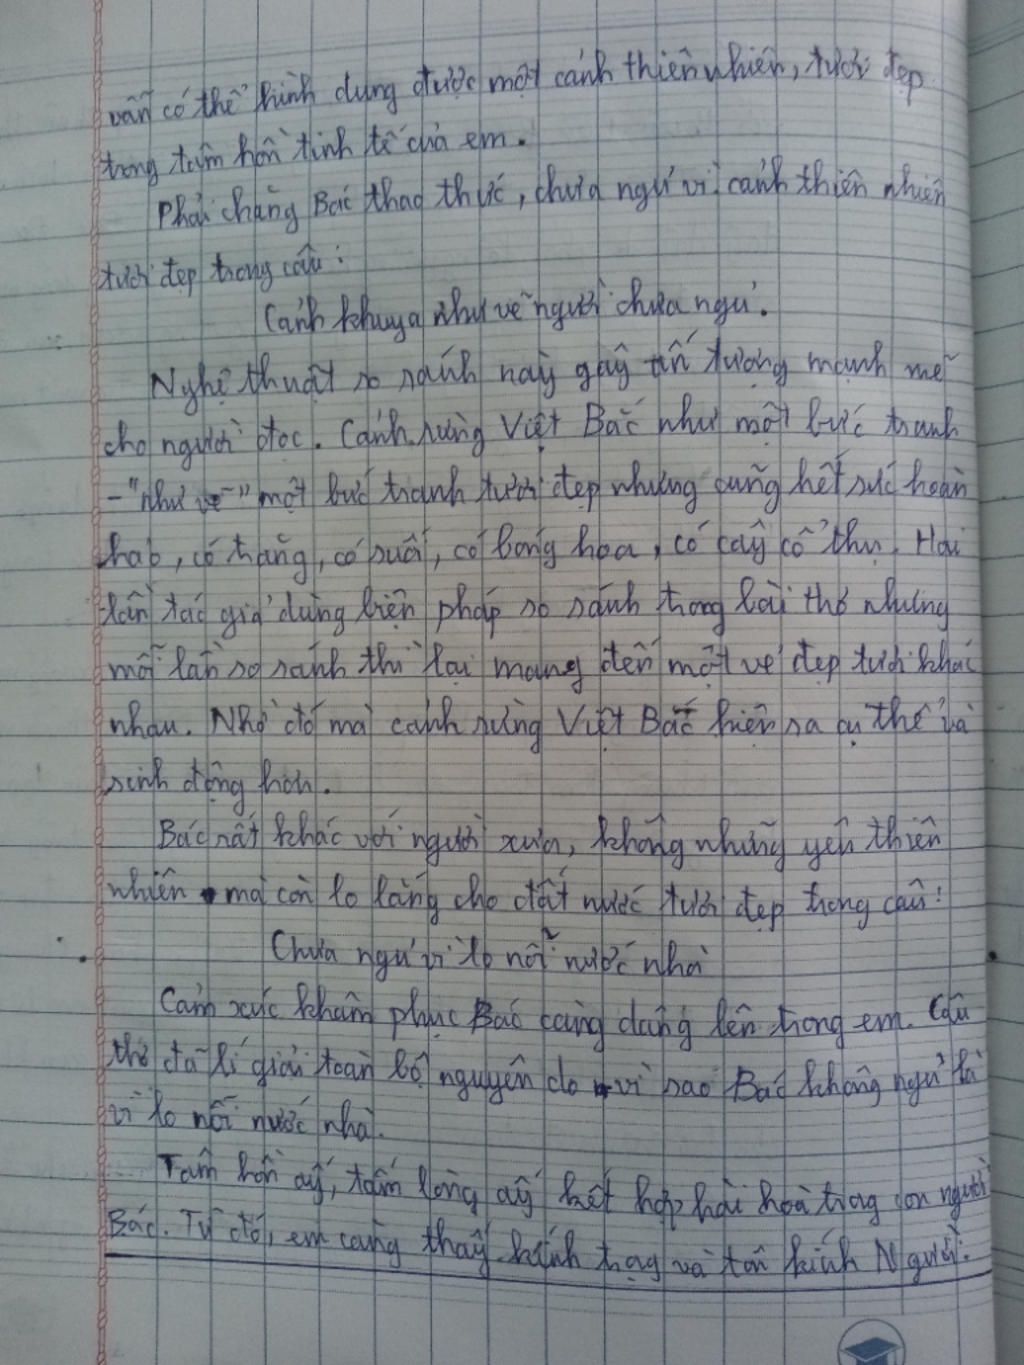 vẫn có thể hình dung được một cảnh thiên nhiên, tươi đẹp
trong tâm hồn tinh tế của em.
Phải chăng Bác thao thức, chưa ngủ vì cảnh thiên nhiên
tươi đẹp trong câu:
Cảnh khuya như vẽ người chưa ngủ.
Nghệ thuật so sánh này gây ấn tượng mạnh mẽ
cho người đọc. Cảnh rừng Việt Bắc như một bức tranh
- "như vẽ" một bức tranh tươi đẹp nhưng cũng hết sức hoàn
hảo, có trăng, có suối, có bóng hoa, có cây cổ thụ. Hai
lần tác giả dùng biện pháp so sánh trong bài thơ nhưng
mỗi lần so sánh thì lại mang đến một vẻ đẹp tươi khác
nhau. Nhờ đó mà cảnh rừng Việt Bắc hiện ra cụ thể và
sinh động hơn.
Bác rất khác với người xưa, không những yêu thiên
nhiên mà còn lo lắng cho đất nước tươi đẹp trong câu:
Chưa ngủ vì lo nỗi nước nhà
Cảm xúc khâm phục Bác càng dâng lên trong em. Câu
thơ đã lí giải toàn bộ nguyên do vì sao Bác không ngủ là
vì lo nỗi nước nhà.
Tâm hồn ấy, tấm lòng ấy kết hợp hài hoà trong con người
Bác. Từ đó, em càng thấy kính trọng và tôn kính Người.